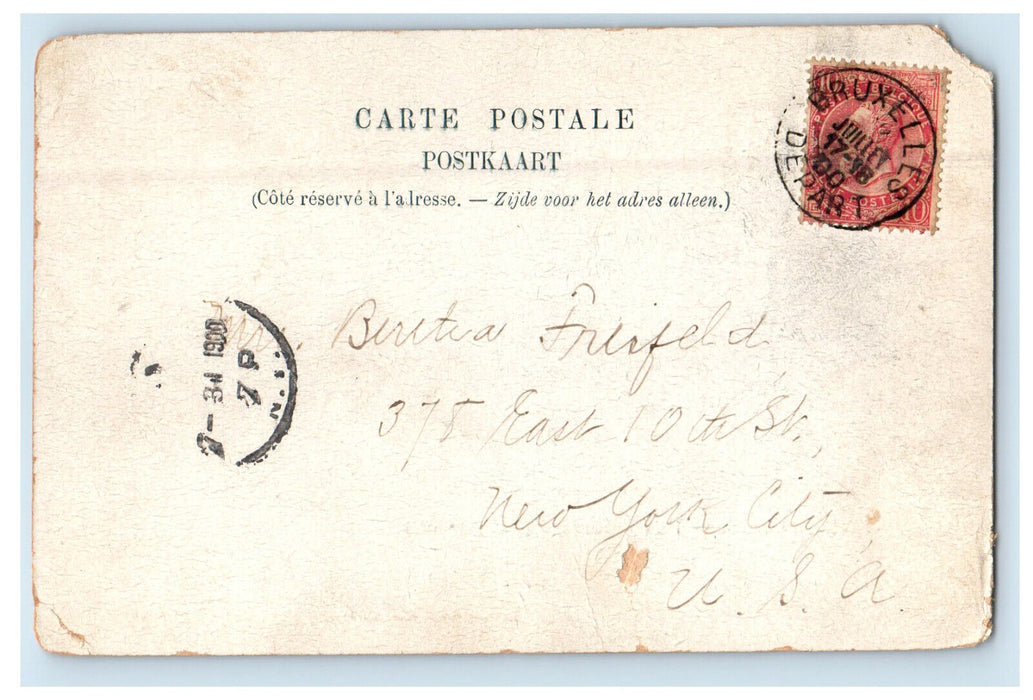 CARTE POSTALE
POSTKAART
(Côté réservé à l'adresse. — Zijde voor het adres alleen.)
BRUXELLES
JUILLET
17-18
00
DEPART
10 POSTES 10
7-31 1900
7 P
N.Y.
Bertha Friesfeld
378 East 10th St.
New York City
U. S. A.